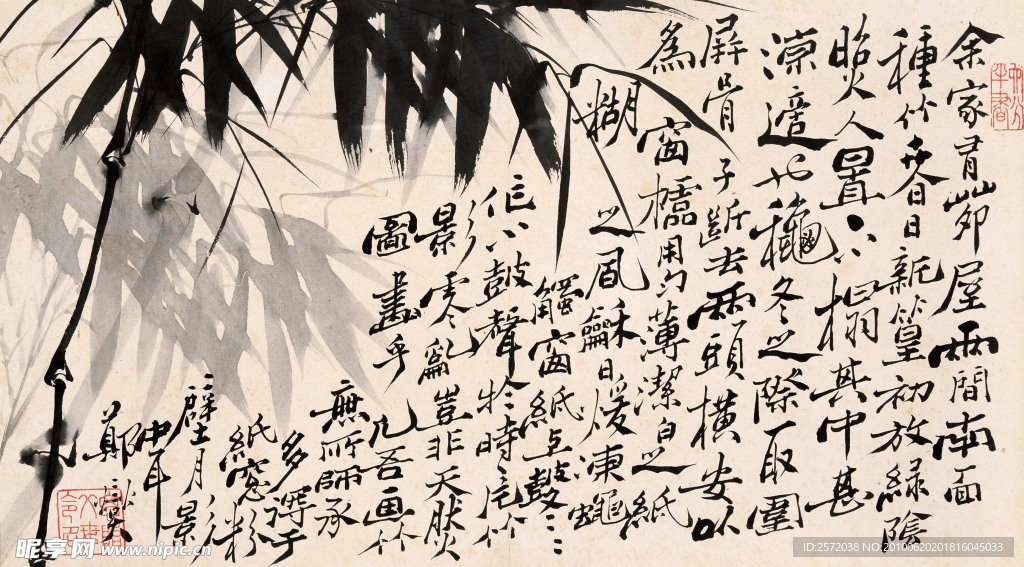 余家有茆屋兩間南面
種竹夏日新篁初放綠陰
照人置小榻其中甚
涼適也龝冬之際取圍
屏骨子斷去兩頭橫安以
為窗櫺用勻薄潔白之紙
糊之風龢日煖凍蠅
觸窗紙上鼕〻
作小鼓聲於時一片竹
影零亂豈非天然
圖畫乎凡吾画竹
無所師承
多得于
紙窗粉
壁月影
中耳
鄭燮
昵享网 www.nipic.cn
ID:2572038 NO:20100620201816045033